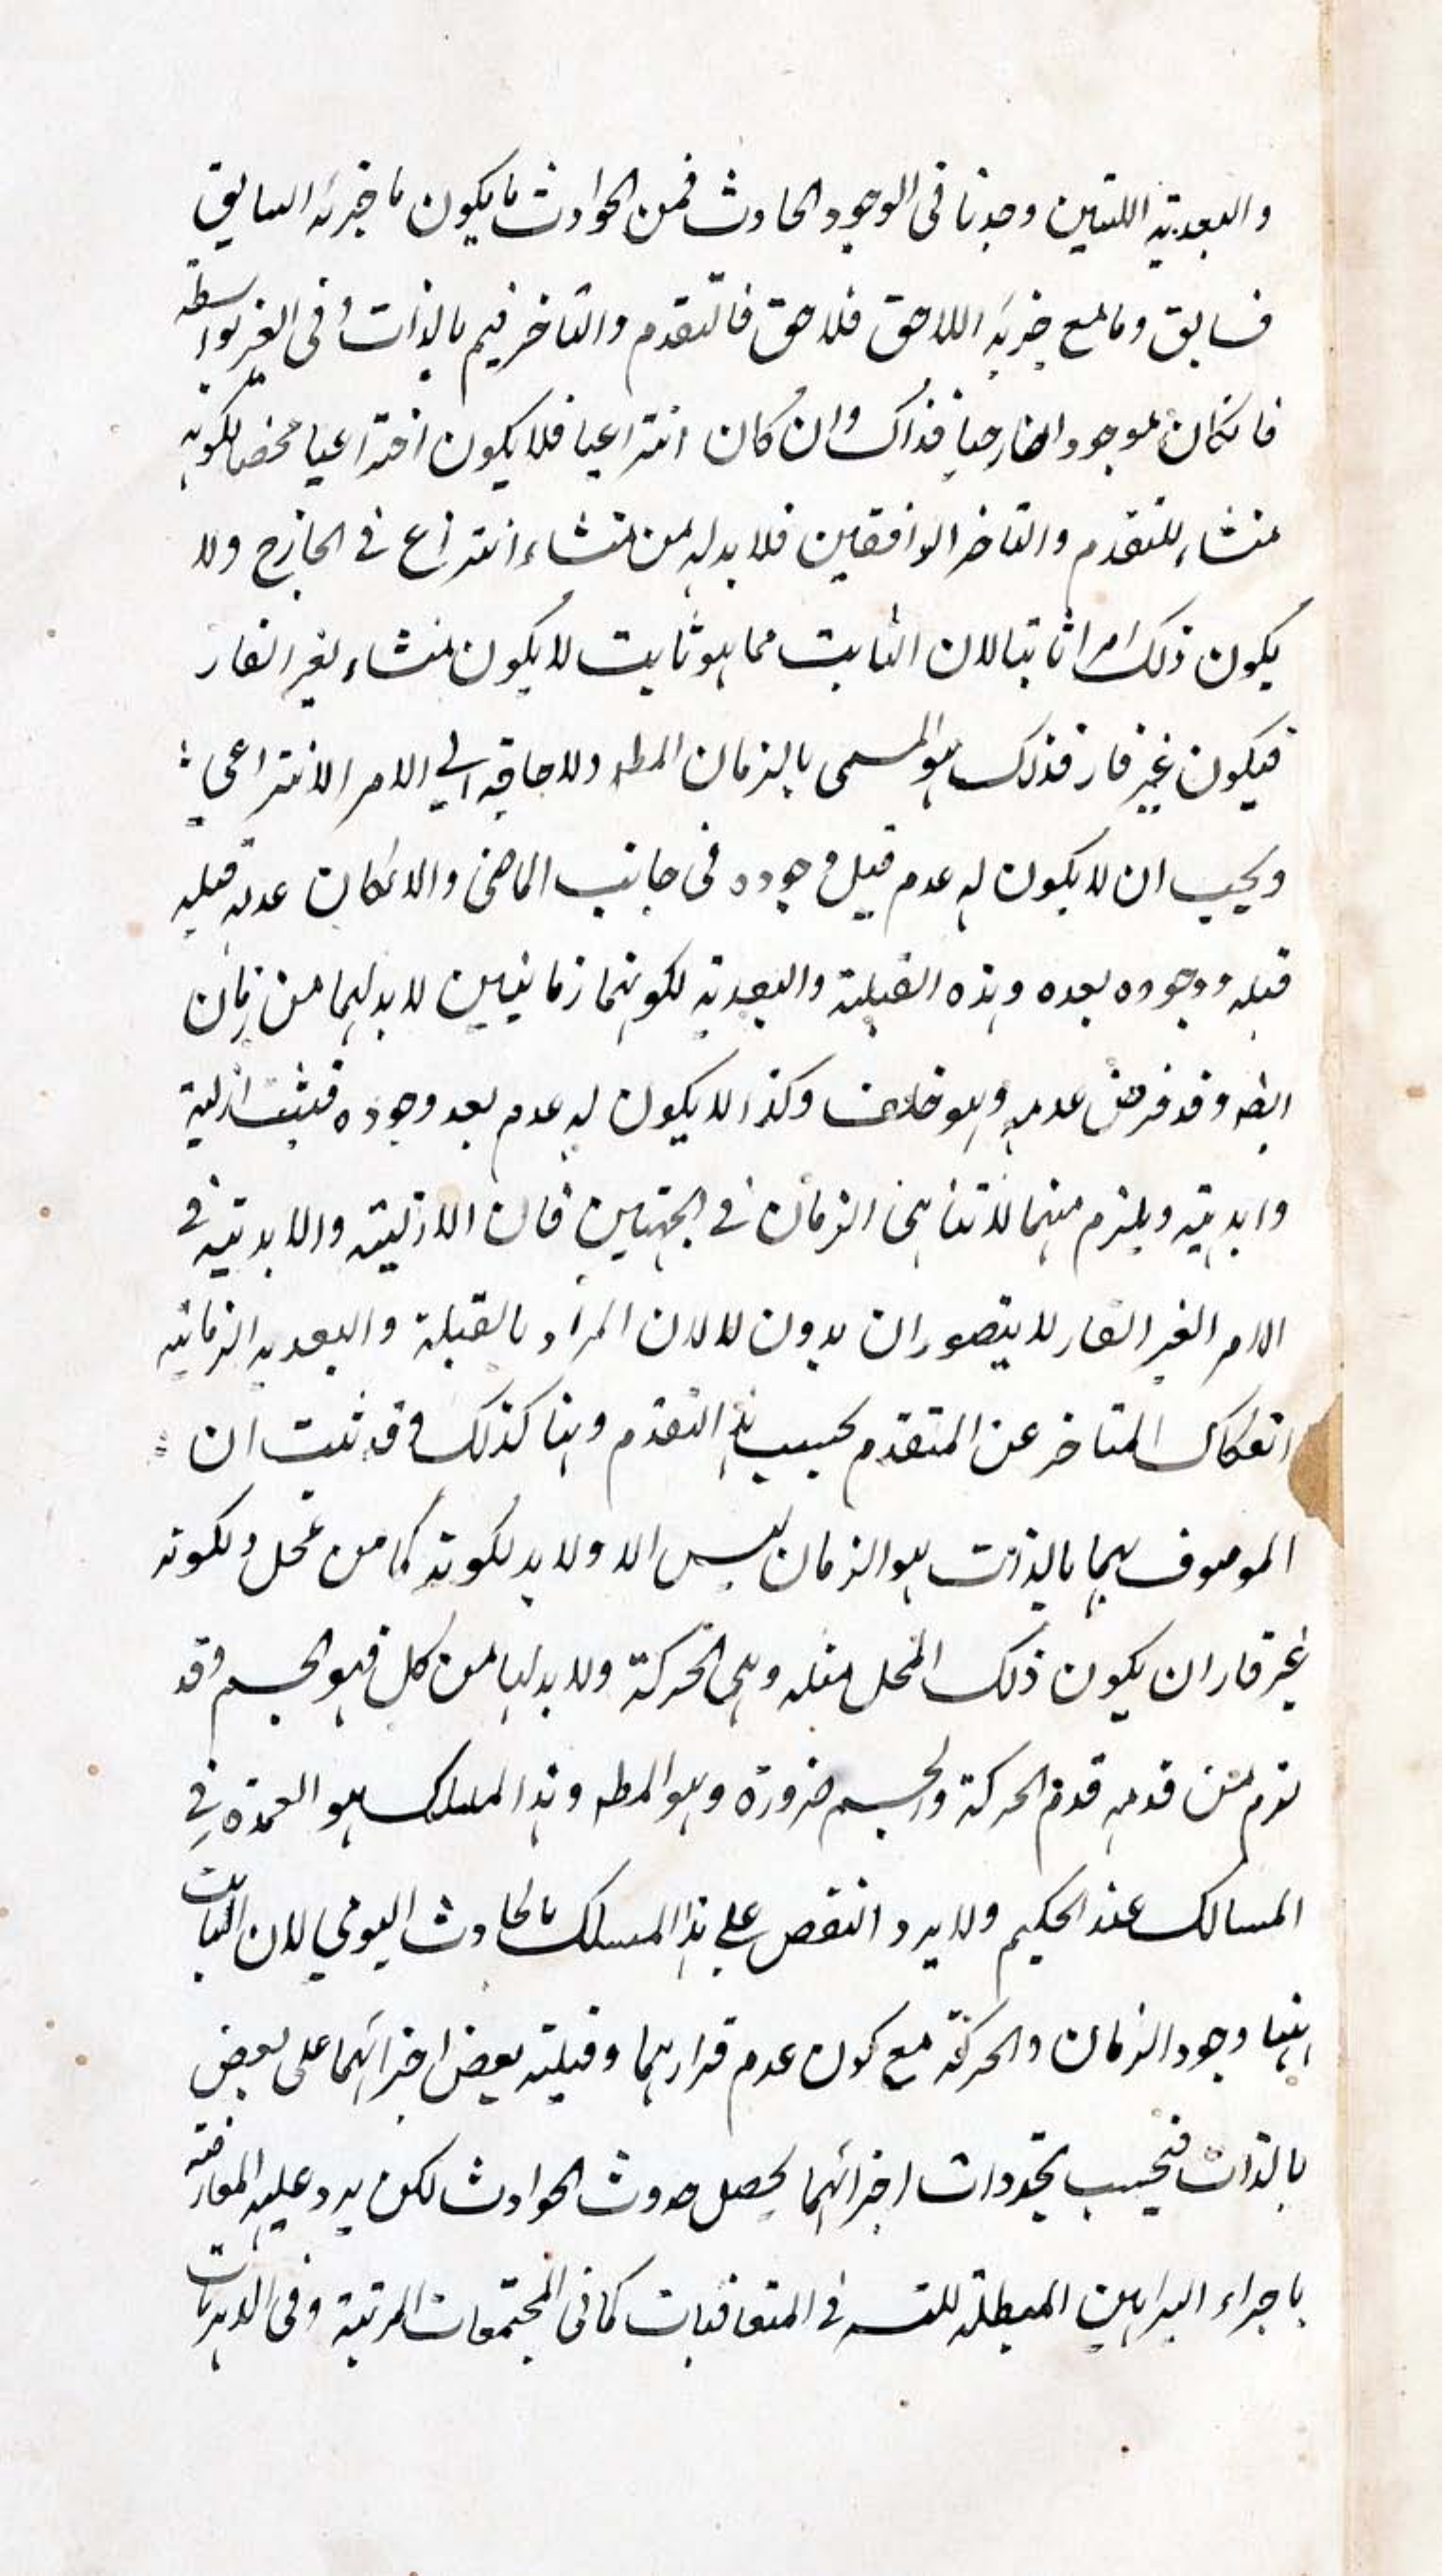 والبعدية اللتين وجدنا فى الوجود الحادث فمن الحوادث ما يكون ما جزئه السابق
فسابق وما مع جزئه اللاحق فلاحق فالتقدم والتاخر فيه بالذات وفى الغير بواسطة
فانكان موجودا خارجيا فذاك وان كان انتزاعيا فلا يكون اختراعيا محضا لكونه
منشاء للتقدم والتاخر الواقعين فلا بد له من منشاء انتزاع فى الخارج ولا
يكون ذلك امرا ثابتا لان الثابت مما هو ثابت لا يكون منشاء لغير القار
فيكون غير قار فذلك هو المسمى بالزمان المطه ولا حاجة الى الامر الانتزاعى
ويجب ان لا يكون له عدم قبل وجوده فى جانب الماضى والا لكان عدمه قبله
قبله ووجوده بعده وهذه القبلية والبعدية لكونهما زمانيين لا بد لهما من زمان
ايضه وقد فرض عدمه وهو خلف وكذا لا يكون له عدم بعد وجوده فثبت ازلية
وابدية ويلزم منهما لا تناهى الزمان فى الجهتين فان الازلية والابدية فى
الامر الغير القار لا يتصوران بدون لا لان المراد بالقبلية والبعدية الزمانية
انفكاك المتاخر عن المتقدم بحسب هذا التقدم وهنا كذلك وقد ثبت ان
الموصوف بهما بالذات هو الزمان ليس الا ولا بد لكونه كما من محل ولكونه
غير قار ان يكون ذلك المحل مثله وهى الحركة ولا بد لها من كل فهو الجسم وقد
لزم من قدمه قدم الحركة والجسم ضرورة وهو المطه وهذا المسلك هو العمدة فى
المسالك عند الحكيم ولا يرد النقض على هذا المسلك بالحادث اليومى لان الثابت
ههنا وجود الزمان والحركة مع كون عدم قرارهما وقبلية بعض اجزائهما على بعض
بالذات فبحسب تجددات اجزائهما يحصل حدوث الحوادث لكن يرد عليه المعارضة
باجراء البراهين المبطلة للتسه فى المتعاقبات كما فى المجتمعات المرتبة وفى الدهريات